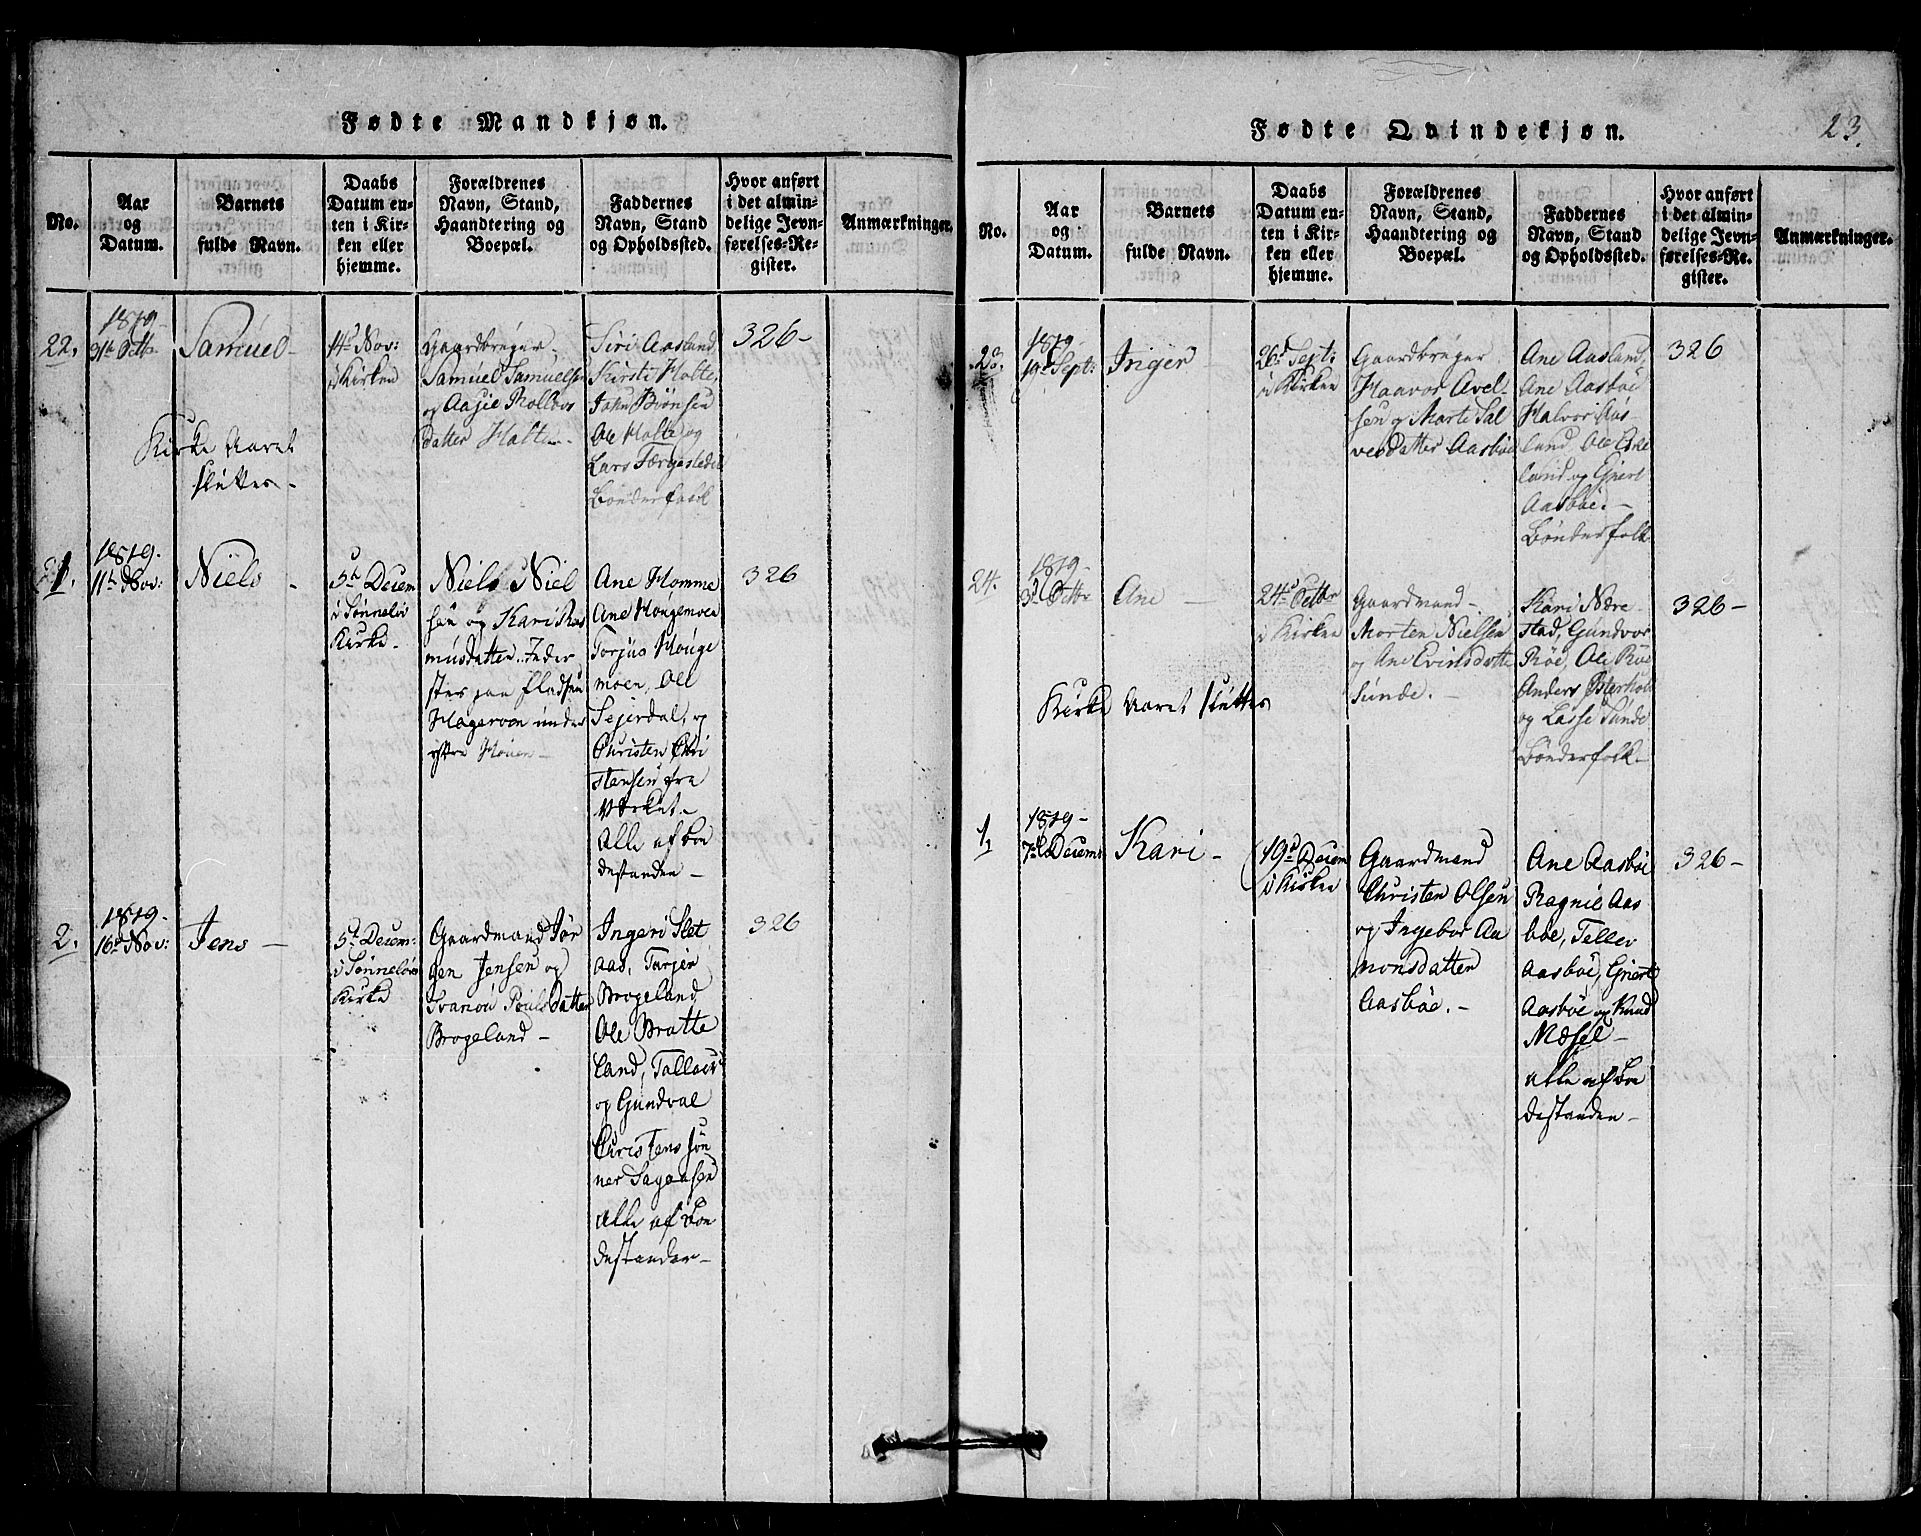 Fødte Mandkjøn.
No.
Aar
og
Datum.
Barnets
fulde Navn.
Daabs
Datum en-
ten i Kir-
ken eller
hjemme.
Forældrenes
Navn, Stand,
Haandtering og
Boepæl.
Faddernes
Navn, Stand
og Opholdssted.
Hvor anført
i det almin-
delige Jevn-
førelses-Re-
gister.
Anmærkninger.
22.
1819-
31te Octbr
Samuel-
14d Nov:
i Kirken
Gaardbruger
Samuel Samuelsen
og Aasie
datter Holte-
Siri Aasland
Kirsti Holte,
John Biønsen
Ole Holte og
Lars Færgesteden
Bønderfolk
326-
Kirke Aaret
slutter-
1.
1819-
11te Nov:
Niels -
5te Decem
i Sønneløv
Kirke-
Niels Niel
sen og Kari Ras
musdatter. Inder
ster paa Pladsen
Hagerven under
ystre Houen-
Ane Homme
Ane Hougemoen
Torjus Houge
moen, Ole
Sejerdal, og
Christen Chri
stensen fra
Værket.-
Alle af Bon
destanden-
326
2.
1819-
16de Nov:
Jens -
5te Decem:
i Sønneløv
Kirke
Gaardmand Jør
gen Jensen og
Svanou Poulsdatter
Brogeland-
Ingeri Slet
aas, Tarjer
Brogeland,
Ole Bratte
land, Tallov
og Gundval
Christens søn
ner Sagaasen
Alle af Bon
destanden-
326
Fødte Qvindekjøn.
23.
No.
Aar
og
Datum.
Barnets
fulde Navn.
Daabs
Datum en-
ten i Kir-
ken eller
hjemme.
Forældrenes
Navn, Stand,
Haandtering og
Boepæl.
Faddernes
Navn, Stand
og Opholdssted.
Hvor anført
i det almin-
delige Jevn-
førelses-Re-
gister.
Anmærkninger.
23.
1819-
19d Sept:
Inger -
26d Sept:
i Kirken
Gaardbruger
Haavor Avel-
sen og Marte Sal
vesdatter Aasbøe
Ane Aasland,
Ane Aasbøe
Halvor Aas-
land, Ole
land og Gjert
Aasbøe.-
Bønderfolk
326
24.
1819-
3d Octbr
Ane -
24d Octbr
i Kirken
Gaardmand-
Morten Nielsen
og Ane Evindsdatter
Sunde.-
Kari Nære-
stad, Gundvor
Røe, Ole Røe
Anders Østerholt
og Lasse Sunde
Bønderfolk-
326-
Kirke Aaret slutter
1.
1819-
7de Decem:
Kari -
19d Decem
i Kirken
Gaardmand
Christen Olsen
og Ingebor Aa
nonsdatter
Aasbøe.-
Ane Aasbøe
Ragnie Aas
bøe, Tellev
Aasbøe, Gjert
Aasbøe og Knud
Mæsel-
Alle af Bon
destanden-
326-